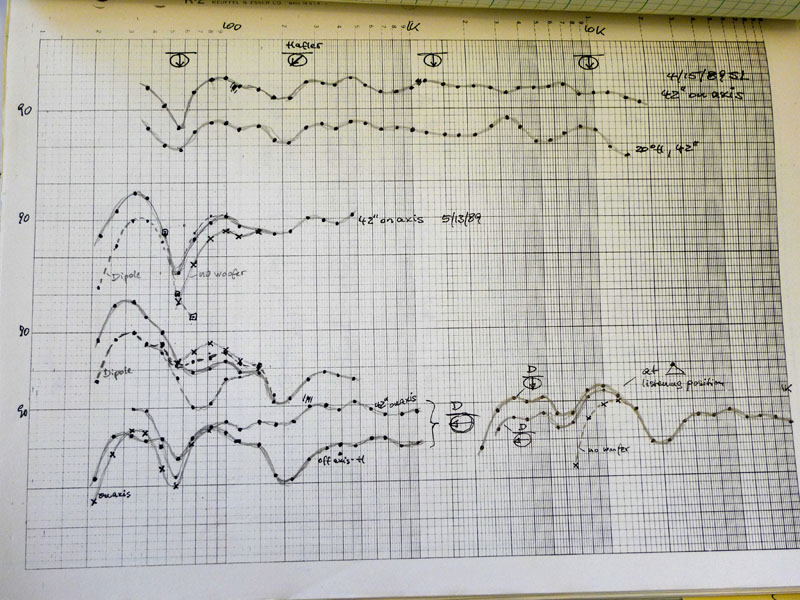 100
1K
10K
Hafler
4/15/89 SL
42" on axis
90
20° off, 42"
90
42" on axis 5/13/89
Dipole
no woofer
90
Dipole
90
42" on axis
D
D
D
at
listening position
no woofer
off axis-H
on axis
1K